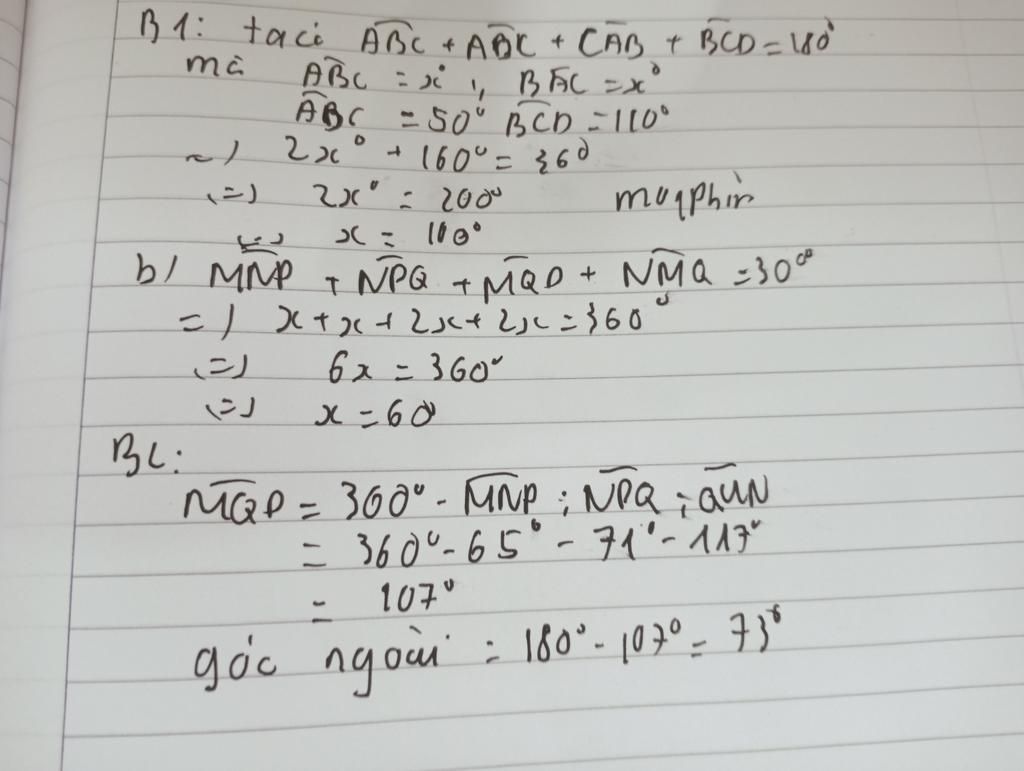 B1: taci ABC + ABC + CAB + BCD = 180°
mà ABC = x° , BAC = x°
ABC = 50° BCD = 110°
~) 2x° + 160° = 360
(=) 2x° = 200°
(=) x = 100°
b/ MNP + NPQ + MQP + NMQ = 30°
=) x + x + 2x + 2x = 360°
(=) 6x = 360°
(=) x = 60
BL:
MQP = 360° - MNP ; NPQ ; QMN
= 360° - 65° - 71° - 117°
= 107°
góc ngoài = 180° - 107° = 73°